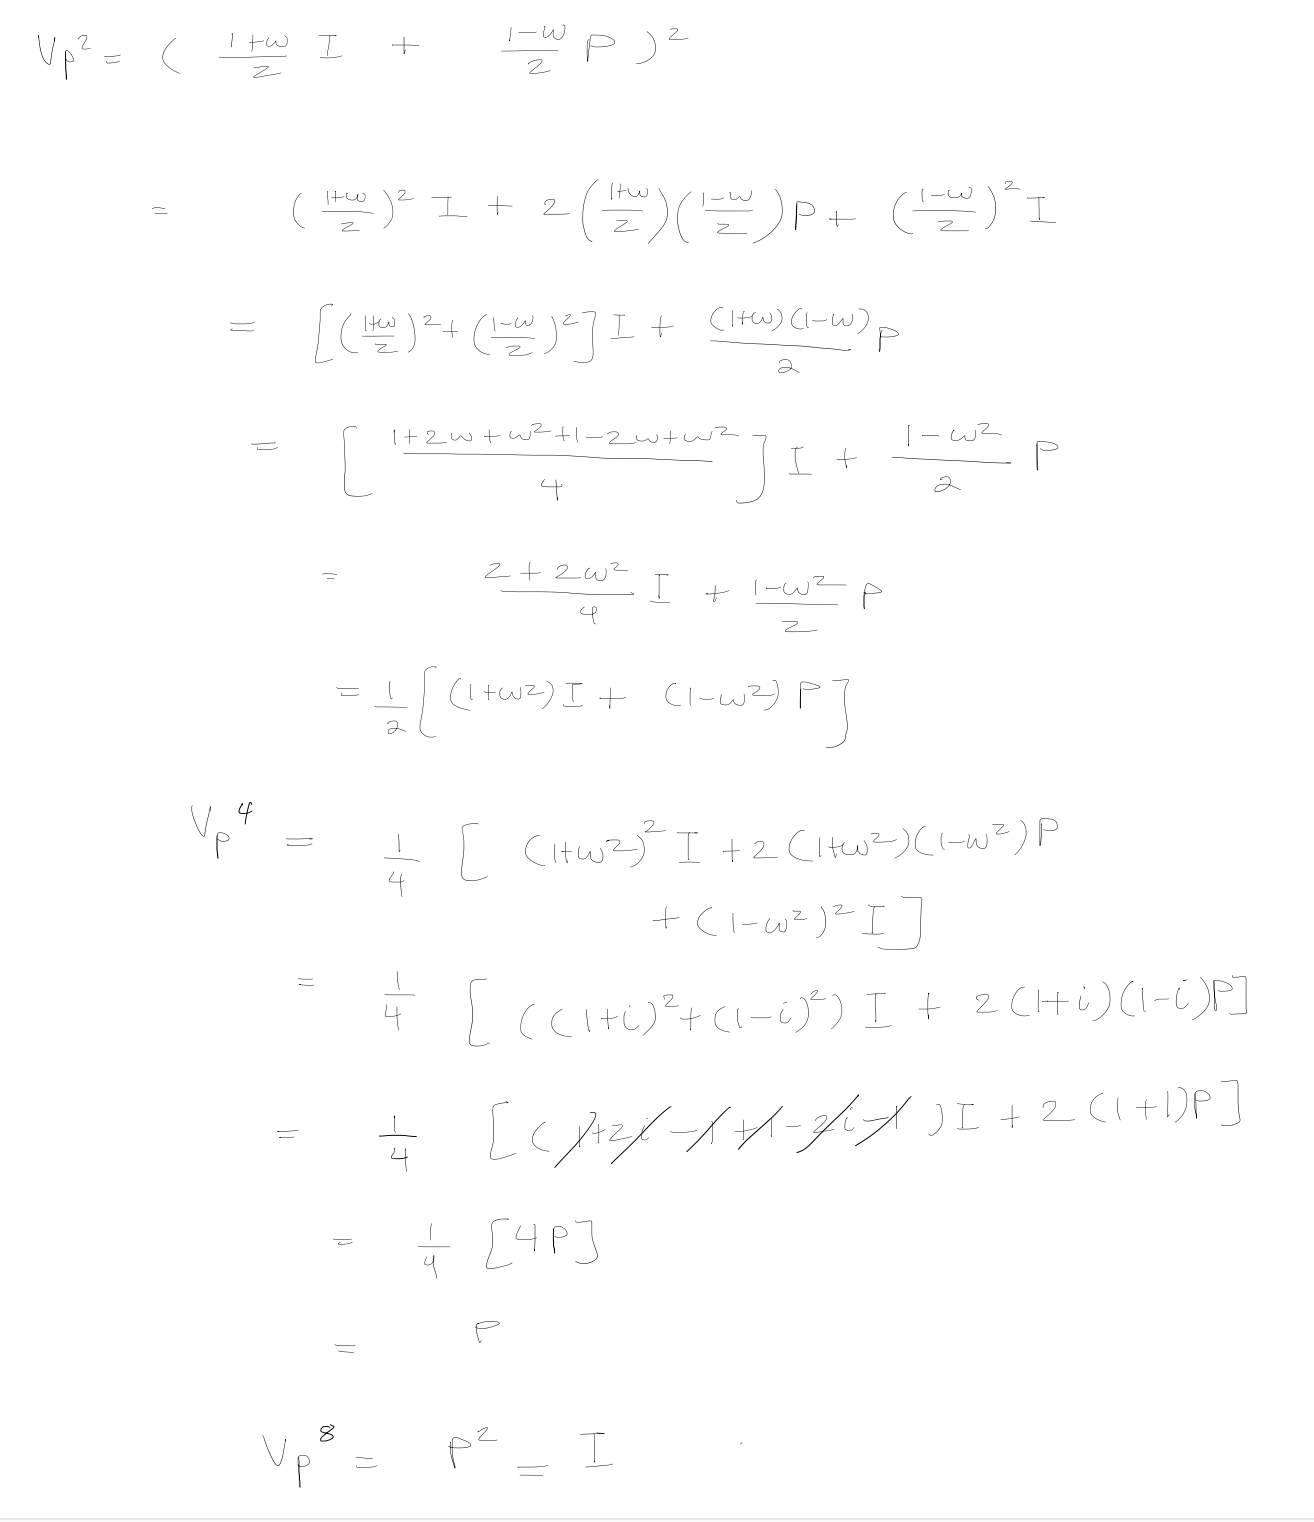 Vp² = ( (1+ω)/2 I + (1-ω)/2 P )²
= ( (1+ω)/2 )² I + 2 ( (1+ω)/2 ) ( (1-ω)/2 ) P + ( (1-ω)/2 )² I
= [ ( (1+ω)/2 )² + ( (1-ω)/2 )² ] I + (1+ω)(1-ω)/2 P
= [ (1+2ω+ω²+1-2ω+ω²)/4 ] I + (1-ω²)/2 P
= (2+2ω²)/4 I + (1-ω²)/2 P
= 1/2 [ (1+ω²) I + (1-ω²) P ]
Vp⁴ = 1/4 [ (1+ω²)² I + 2 (1+ω²)(1-ω²) P
+ (1-ω²)² I ]
= 1/4 [ ((1+i)² + (1-i)²) I + 2 (1+i)(1-i) P ]
= 1/4 [ ( 1+2i-1+1-2i-1 ) I + 2 (1+1) P ]
= 1/4 [4P]
= P
Vp⁸ = P² = I